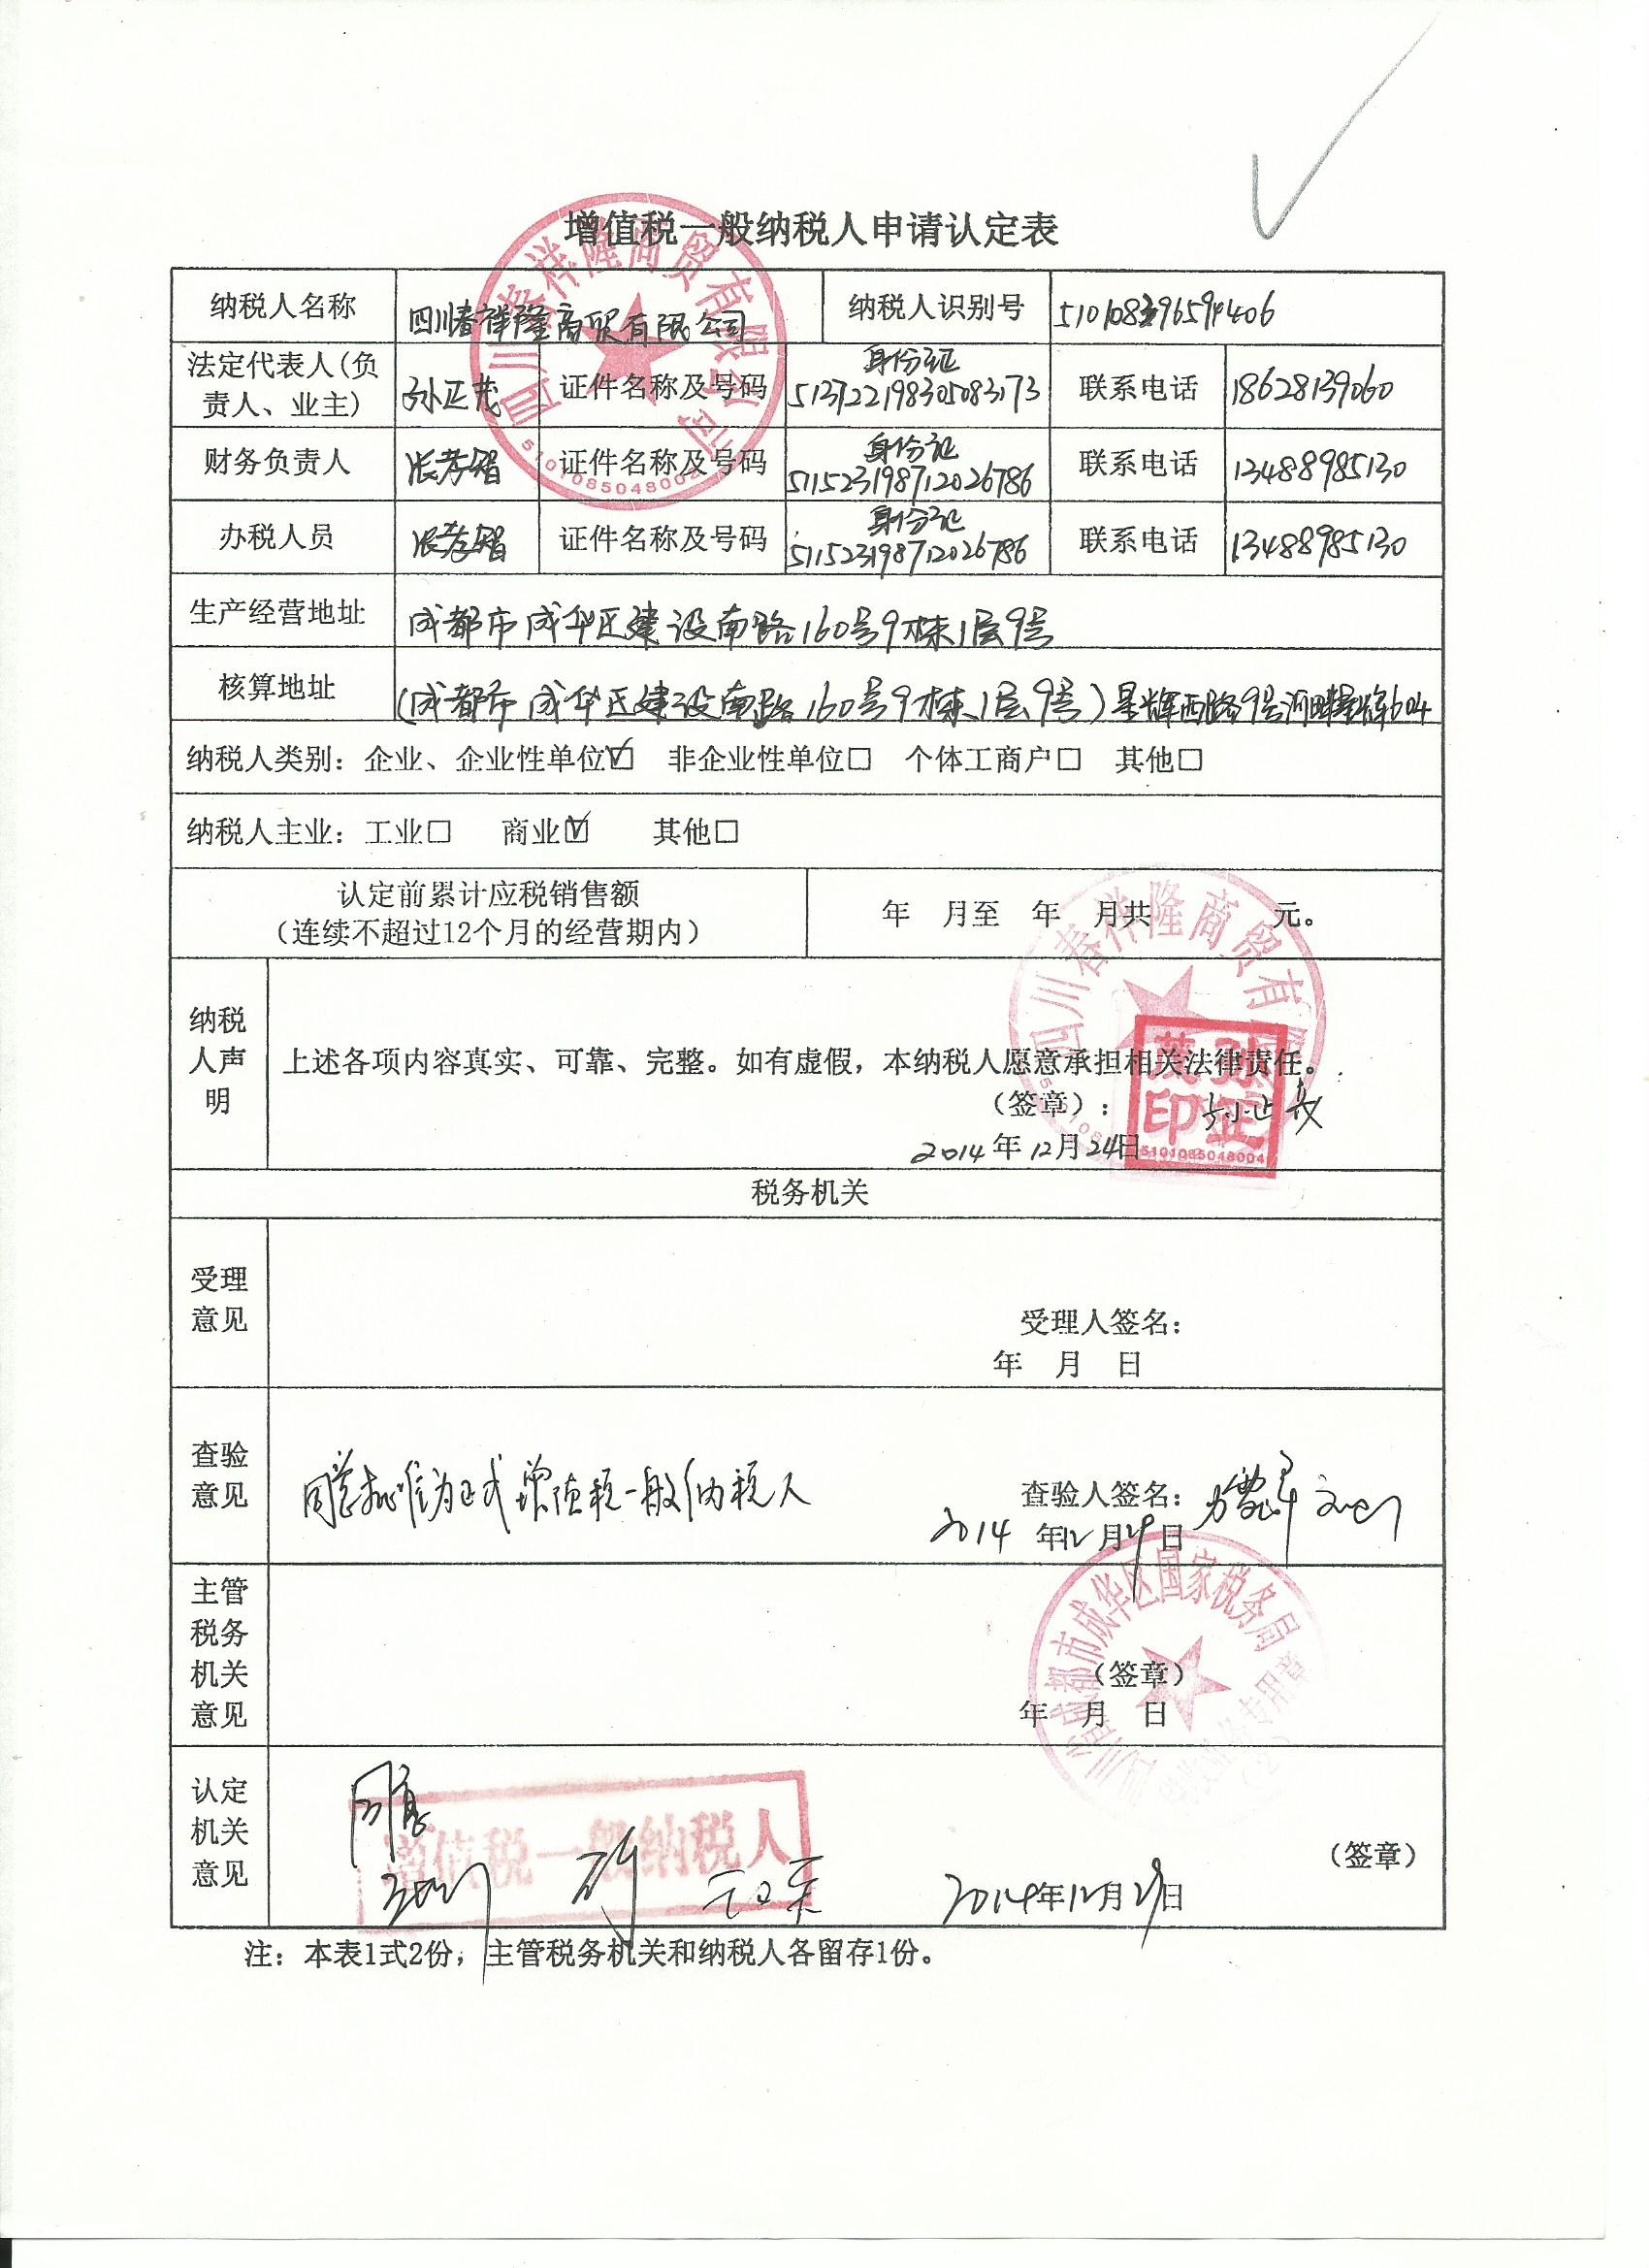 增值税一般纳税人申请认定表
纳税人名称 四川春祥隆商贸有限公司 纳税人识别号 510108396594406
法定代表人(负责人、业主) 孙正茂 证件名称及号码 身份证 513722198305083173 联系电话 18628139060
财务负责人 张孝智 证件名称及号码 身份证 511523198712026786 联系电话 13488985130
办税人员 张孝智 证件名称及号码 身份证 511523198712026786 联系电话 13488985130
生产经营地址 成都市成华区建设南路160号9栋1层9号
核算地址 (成都市成华区建设南路160号9栋1层9号)星辉西路9号河畔星辉604
纳税人类别：企业、企业性单位☑ 非企业性单位□ 个体工商户□ 其他□
纳税人主业：工业□ 商业☑ 其他□
认定前累计应税销售额
（连续不超过12个月的经营期内）
年 月至 年 月共 元。
纳税人声明
上述各项内容真实、可靠、完整。如有虚假，本纳税人愿意承担相关法律责任。
（签章）： 孙正茂
2014年12月24日
四川春祥隆商贸有限公司
孙正茂印
5101085048004
税务机关
受理意见
受理人签名：
年 月 日
查验意见
同意批准为正式增值税一般纳税人
查验人签名：
2014年12月29日
主管税务机关意见
（签章）
年 月 日
四川省成都市成华区国家税务局
认定机关意见
同意
增值税一般纳税人
（签章）
2014年12月29日
注：本表1式2份，主管税务机关和纳税人各留存1份。